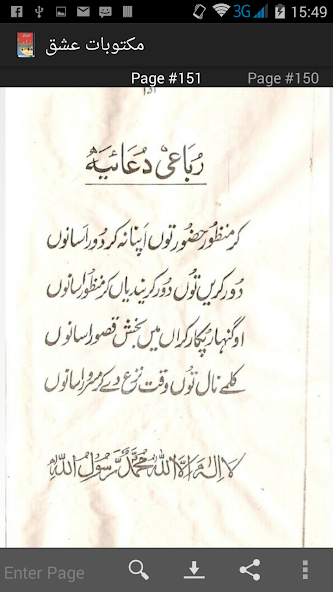 15:49
3G
مکتوبات عشق
Page #151
Page #150
۱۵۱
رُباعی دُعائیہ
کر منظور حضور توں اپنا نہ کر دُور اسانوں
دُور کریں توں دُور کریندیاں کر منظور اسانوں
اوگنہار پکار کراں میں بخش قصور اسانوں
کلمے نال توں وقت نزع دے کر مسرور اسانوں
لَا اِلٰہَ اِلَّا اللّٰہُ مُحَمَّدٌ رَّسُوْلُ اللّٰہِ
Enter Page